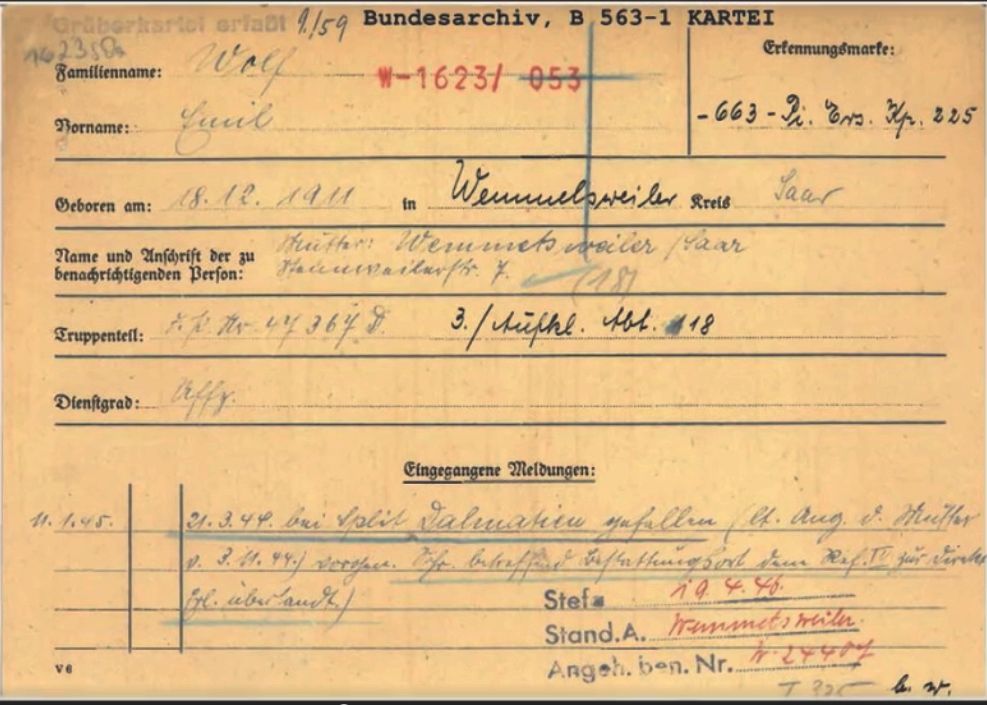 Gräberkartei erfaßt 9./59 Bundesarchiv, B 563-1 KARTEI
Familienname: Wolf
W-1623/ 053
Erkennungsmarke:
Vorname: Emil
-663- Pi. Ers. Kp. 225
Geboren am: 18.12.1911 in Wemmetsweiler Kreis Saar
Name und Anschrift der zu Mutter: Wemmetsweiler /Saar
benachrichtigenden Person: 7. (18)
Truppenteil: F.P. Nr. 47367 D. 3./Aufkl. Abt. 118
Dienstgrad: Uffz.
Eingegangene Meldungen:
11.1.45. 21.3.44. bei Split Dalmatien gefallen (lt. Ang. d. Mutter
v. 3.11.44.) Schr. betreffend Bestattungsort dem Ref. IV zur direkten
Erl. übersandt.)
Stefa 19.4.46.
Stand.A. Wemmetsweiler.
Angeh. ben. Nr. W-24407
V6 b. w.